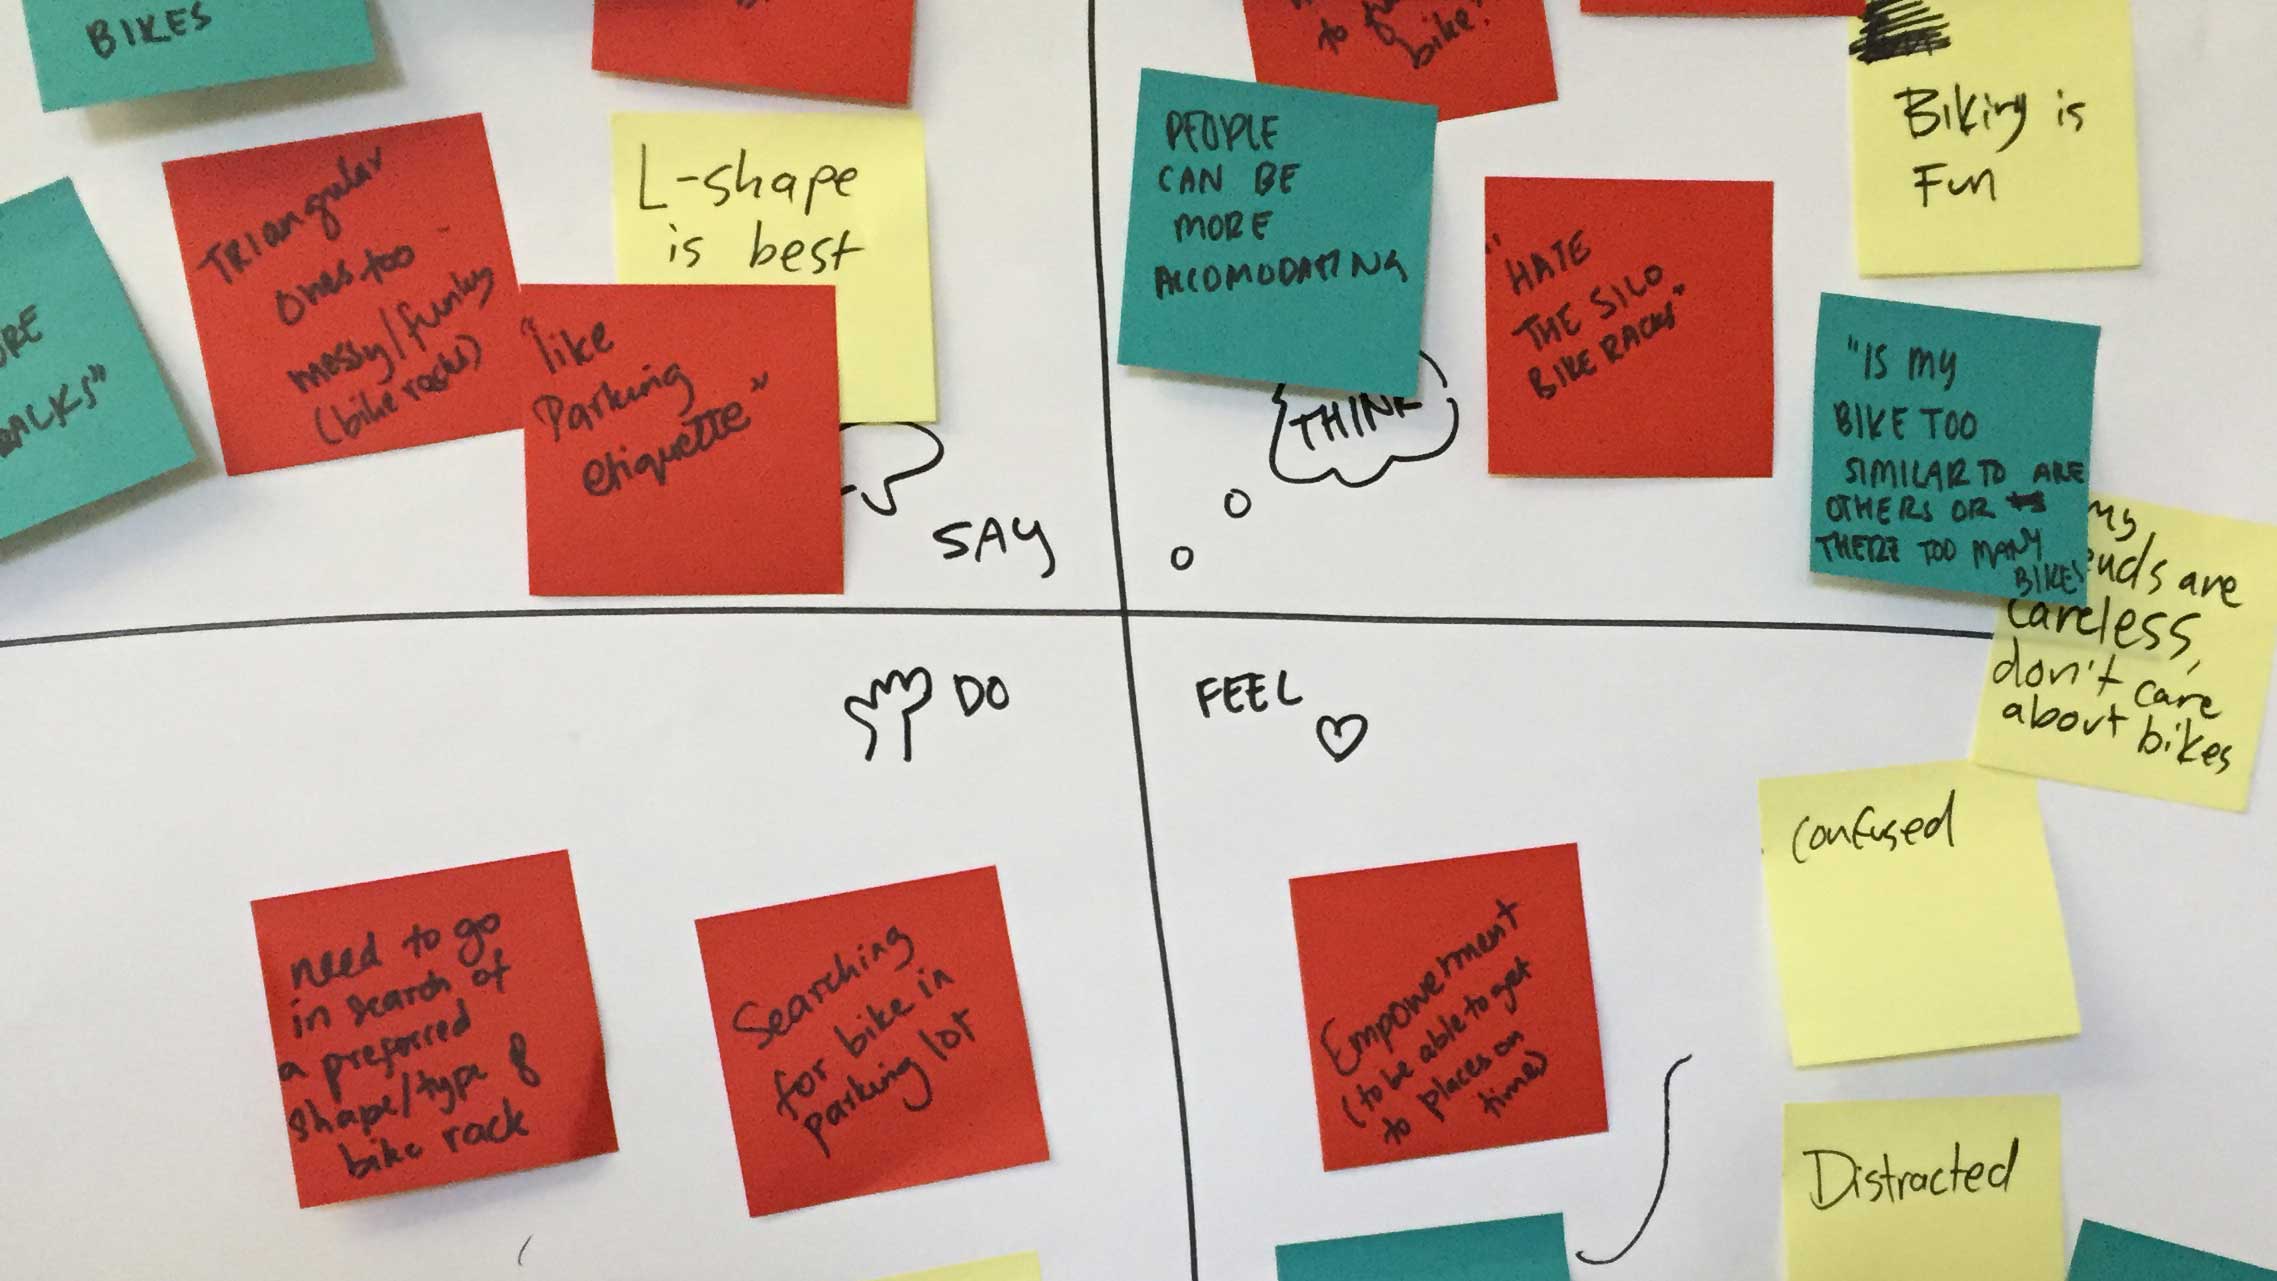 BIKES
TRIangular
ones too
messy/funky
(bike racks)
L-shape
is best
like
Parking
etiquette"
RACKS"
SAY
to
bike?
PEOPLE
CAN BE
MORE
ACCOMODATING
THINK
"HATE
THE SILO
BIKE RACKS"
Biking is
Fun
"IS MY
BIKE TOO
SIMILAR TO ARE
OTHERS OR
THERE TOO MANY
BIKES
my
are
careless,
don't care
about bikes
DO
need to go
in search of
a preferred
shape/type of
bike rack
Searching
for bike in
parking lot
FEEL
Empowerment
(to be able to get
to places on
time)
confused
Distracted